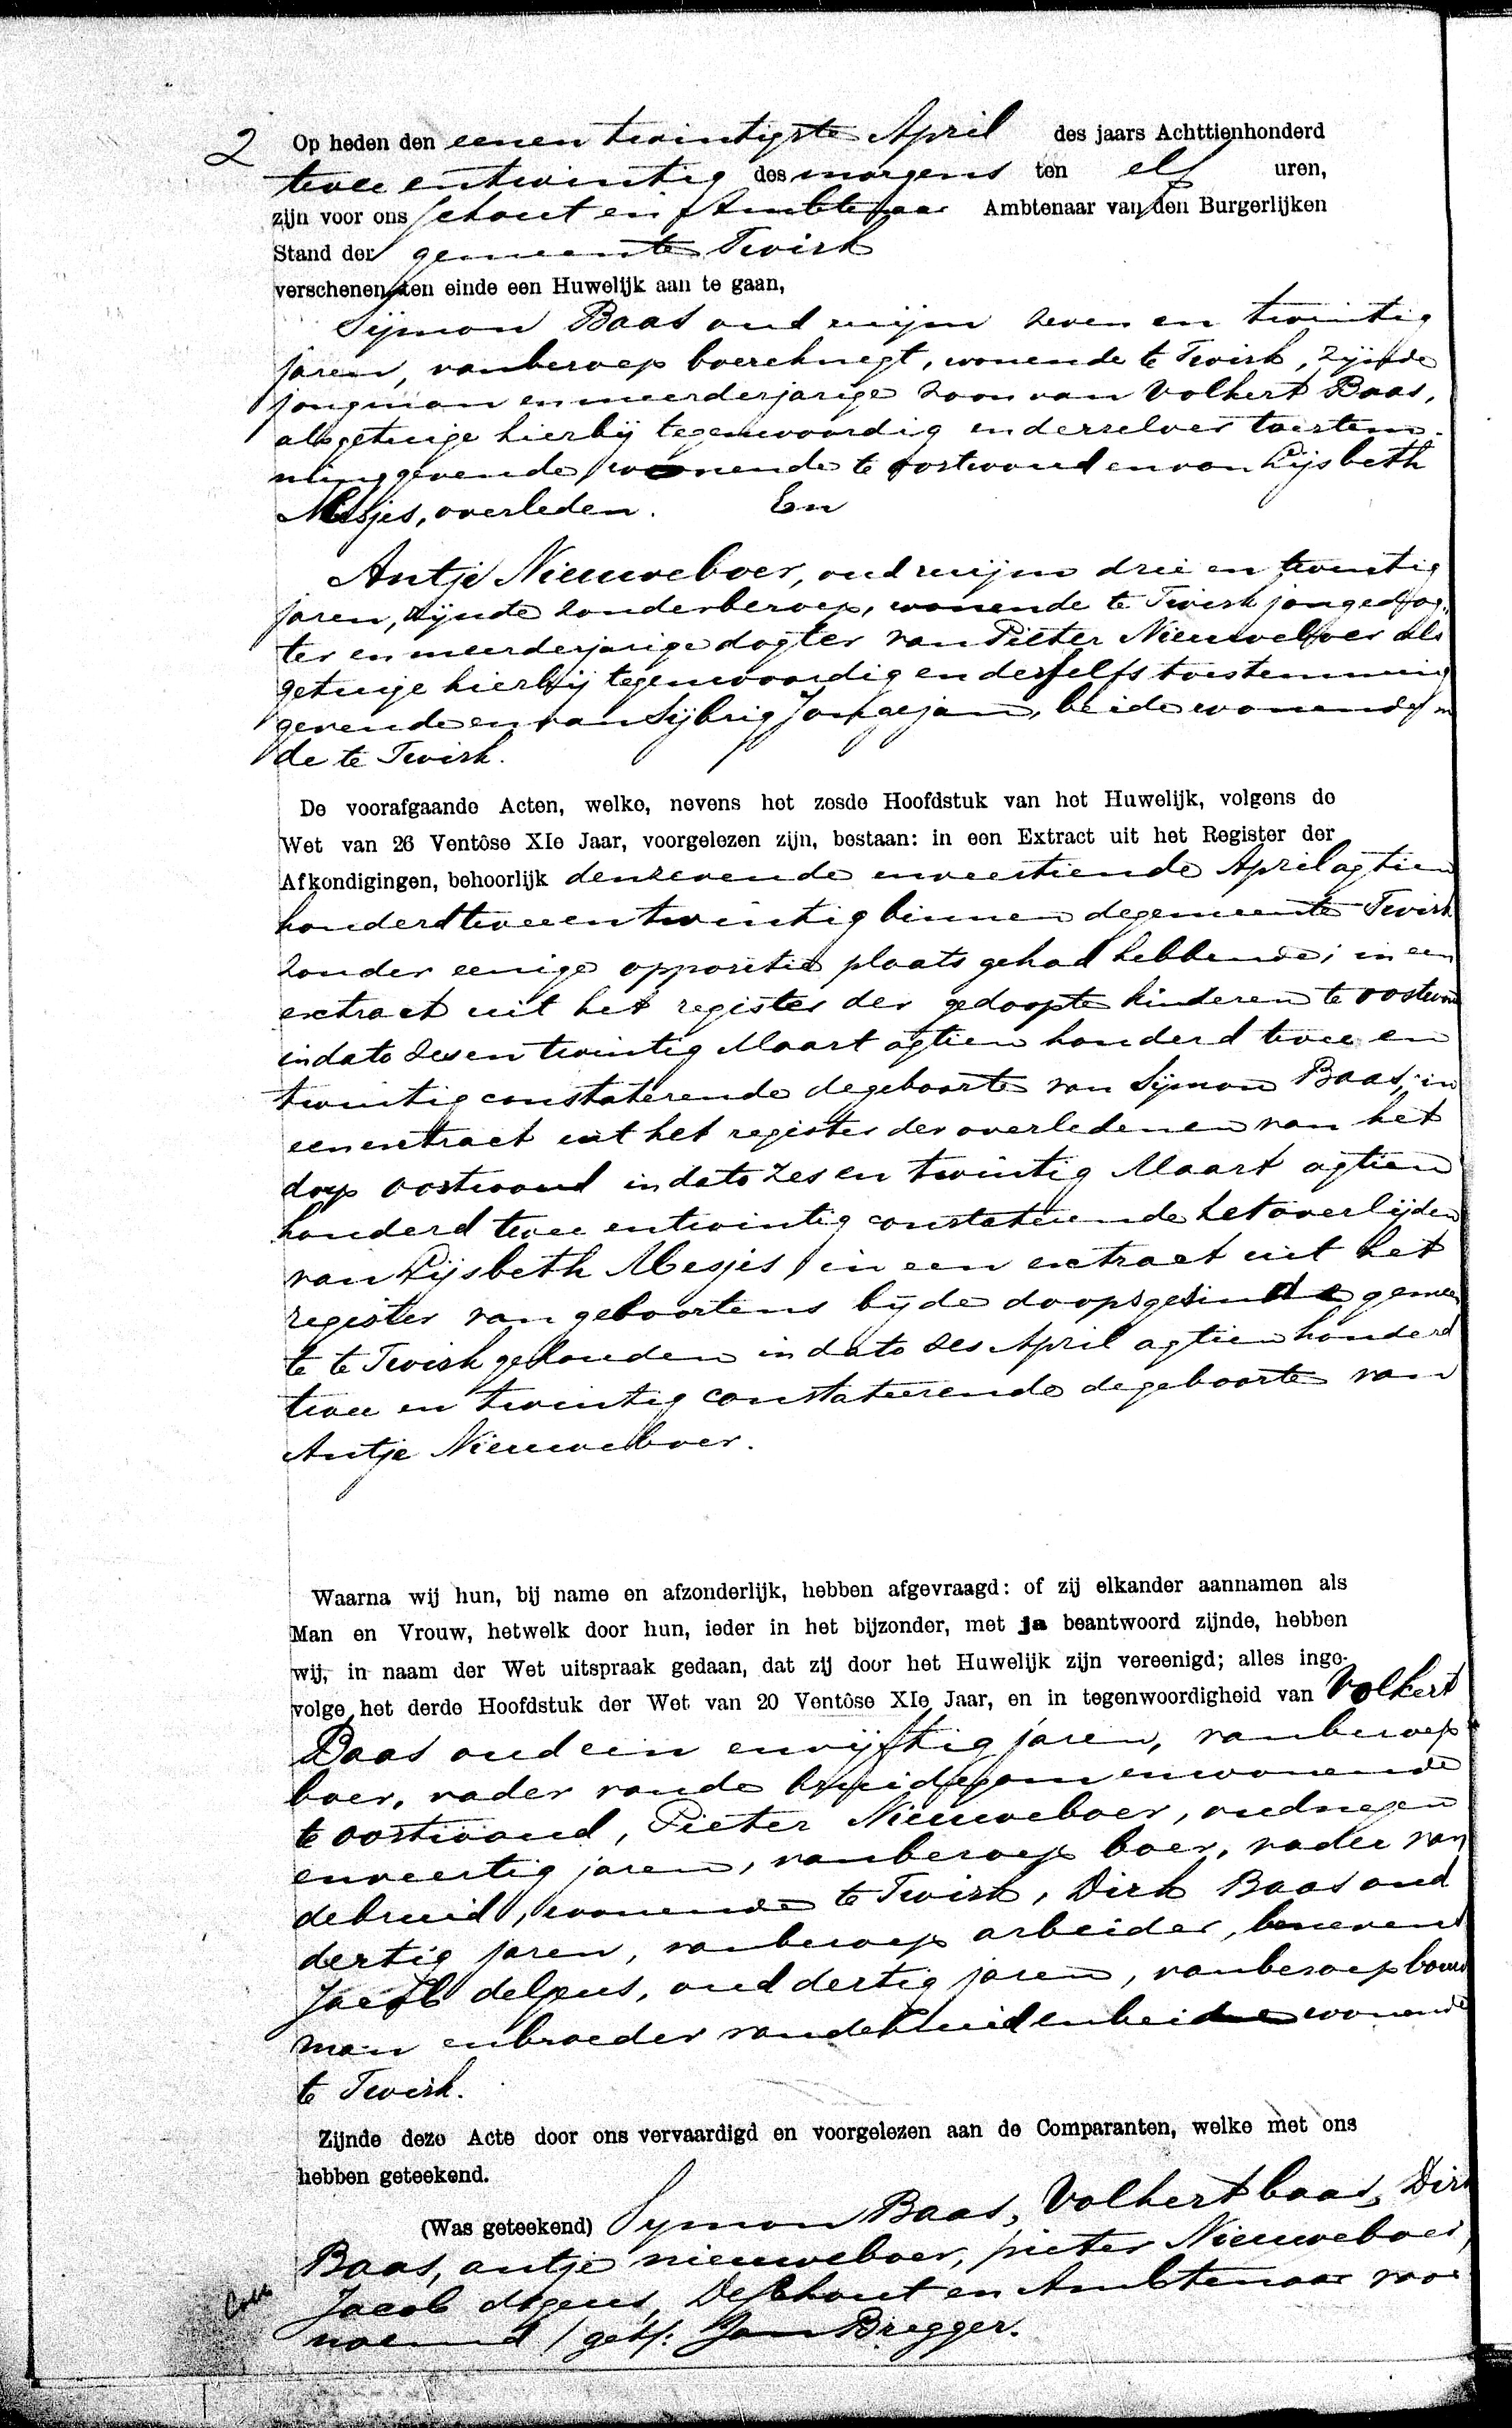 2 Op heden den eenen twintigste April des jaars Achttienhonderd
twee entwintig des morgens ten elf uren,
zijn voor ons Schout en Ambtenaar Ambtenaar van den Burgerlijken
Stand der gemeente Twisk
verschenen, ten einde een Huwelijk aan te gaan,
Sijmon Baas oud ruijm zeven en twintig
jaren, vanberoep boereknegt, wonende te Twisk, zijnde
jongman en meerderjarige zoon van Volkert Baas,
als getuige hierbij tegenwoordig en derzelver toestem-
ming gevende wonende te oostwoud en van Lijsbeth
Mesjes, overleden. En
Antje Nieuweboer, oud ruijm drie en twintig
jaren, zijnde zonderberoep, wonende te Twisk jongedog-
ter en meerderjarige dogter van Pieter Nieuweboer als
getuige hierbij tegenwoordig en deszelfs toestemming
gevende en van Sijbrig Jongejan, beide wonende
de te Twisk.
De voorafgaande Acten, welke, nevens het zesde Hoofdstuk van het Huwelijk, volgens de
Wet van 26 Ventôse XIe Jaar, voorgelezen zijn, bestaan: in een Extract uit het Register der
Afkondigingen, behoorlijk denzevende enveertiende April agtien
honderd twee en twintig binnen degemeente Twisk
zonder eenige oppositie plaats gehad hebbende; in een
extract uit het register der gedoopte kinderen te oostwoud
indato zesen twintig Maart agtien honderd twee en
twintig constaterende degeboorte van Sijmon Baas; in
een extract uit het register der overledenen van het
dorp oostwoud in dato zes en twintig Maart agtien
honderd twee entwintig constaterende het overlijden
van Lijsbeth Mesjes in een extract uit het
register van geboortens bij de doopsgezinde gemeen
te te Twisk gehouden in dato zes April agtien honderd
twee en twintig constateerende degeboorte van
Antje Nieuweboer.
Waarna wij hun, bij name en afzonderlijk, hebben afgevraagd: of zij elkander aannamen als
Man en Vrouw, hetwelk door hun, ieder in het bijzonder, met ja beantwoord zijnde, hebben
wij, in naam der Wet uitspraak gedaan, dat zij door het Huwelijk zijn vereenigd; alles inge-
volge het derde Hoofdstuk der Wet van 20 Ventôse XIe Jaar, en in tegenwoordigheid van Volkert
Baas oud ein envijftig jaren, vanberoep
boer, vader vande bruidegom enwonende
te oostwoud, Pieter Nieuweboer, oudnegen
enveertig jaren, vanberoep boer, vader van
debruid, wonende te Twisk, Dirk Baas oud
dertig jaren, vanberoep arbeider, benevens
Jacob oud dertig jaren, vanberoep bouw
man enbroeder vandebruid enbeide wonende
te Twisk.
Zijnde deze Acte door ons vervaardigd en voorgelezen aan de Comparanten, welke met ons
hebben geteekend.
(Was geteekend) Symon Baas, Volkert baas, Dirk
Baas, antje nieuweboer, pieter Nieuweboer,
Jacob De Schout en Ambtenaar voor
noemd / get/: Jan Bregger.